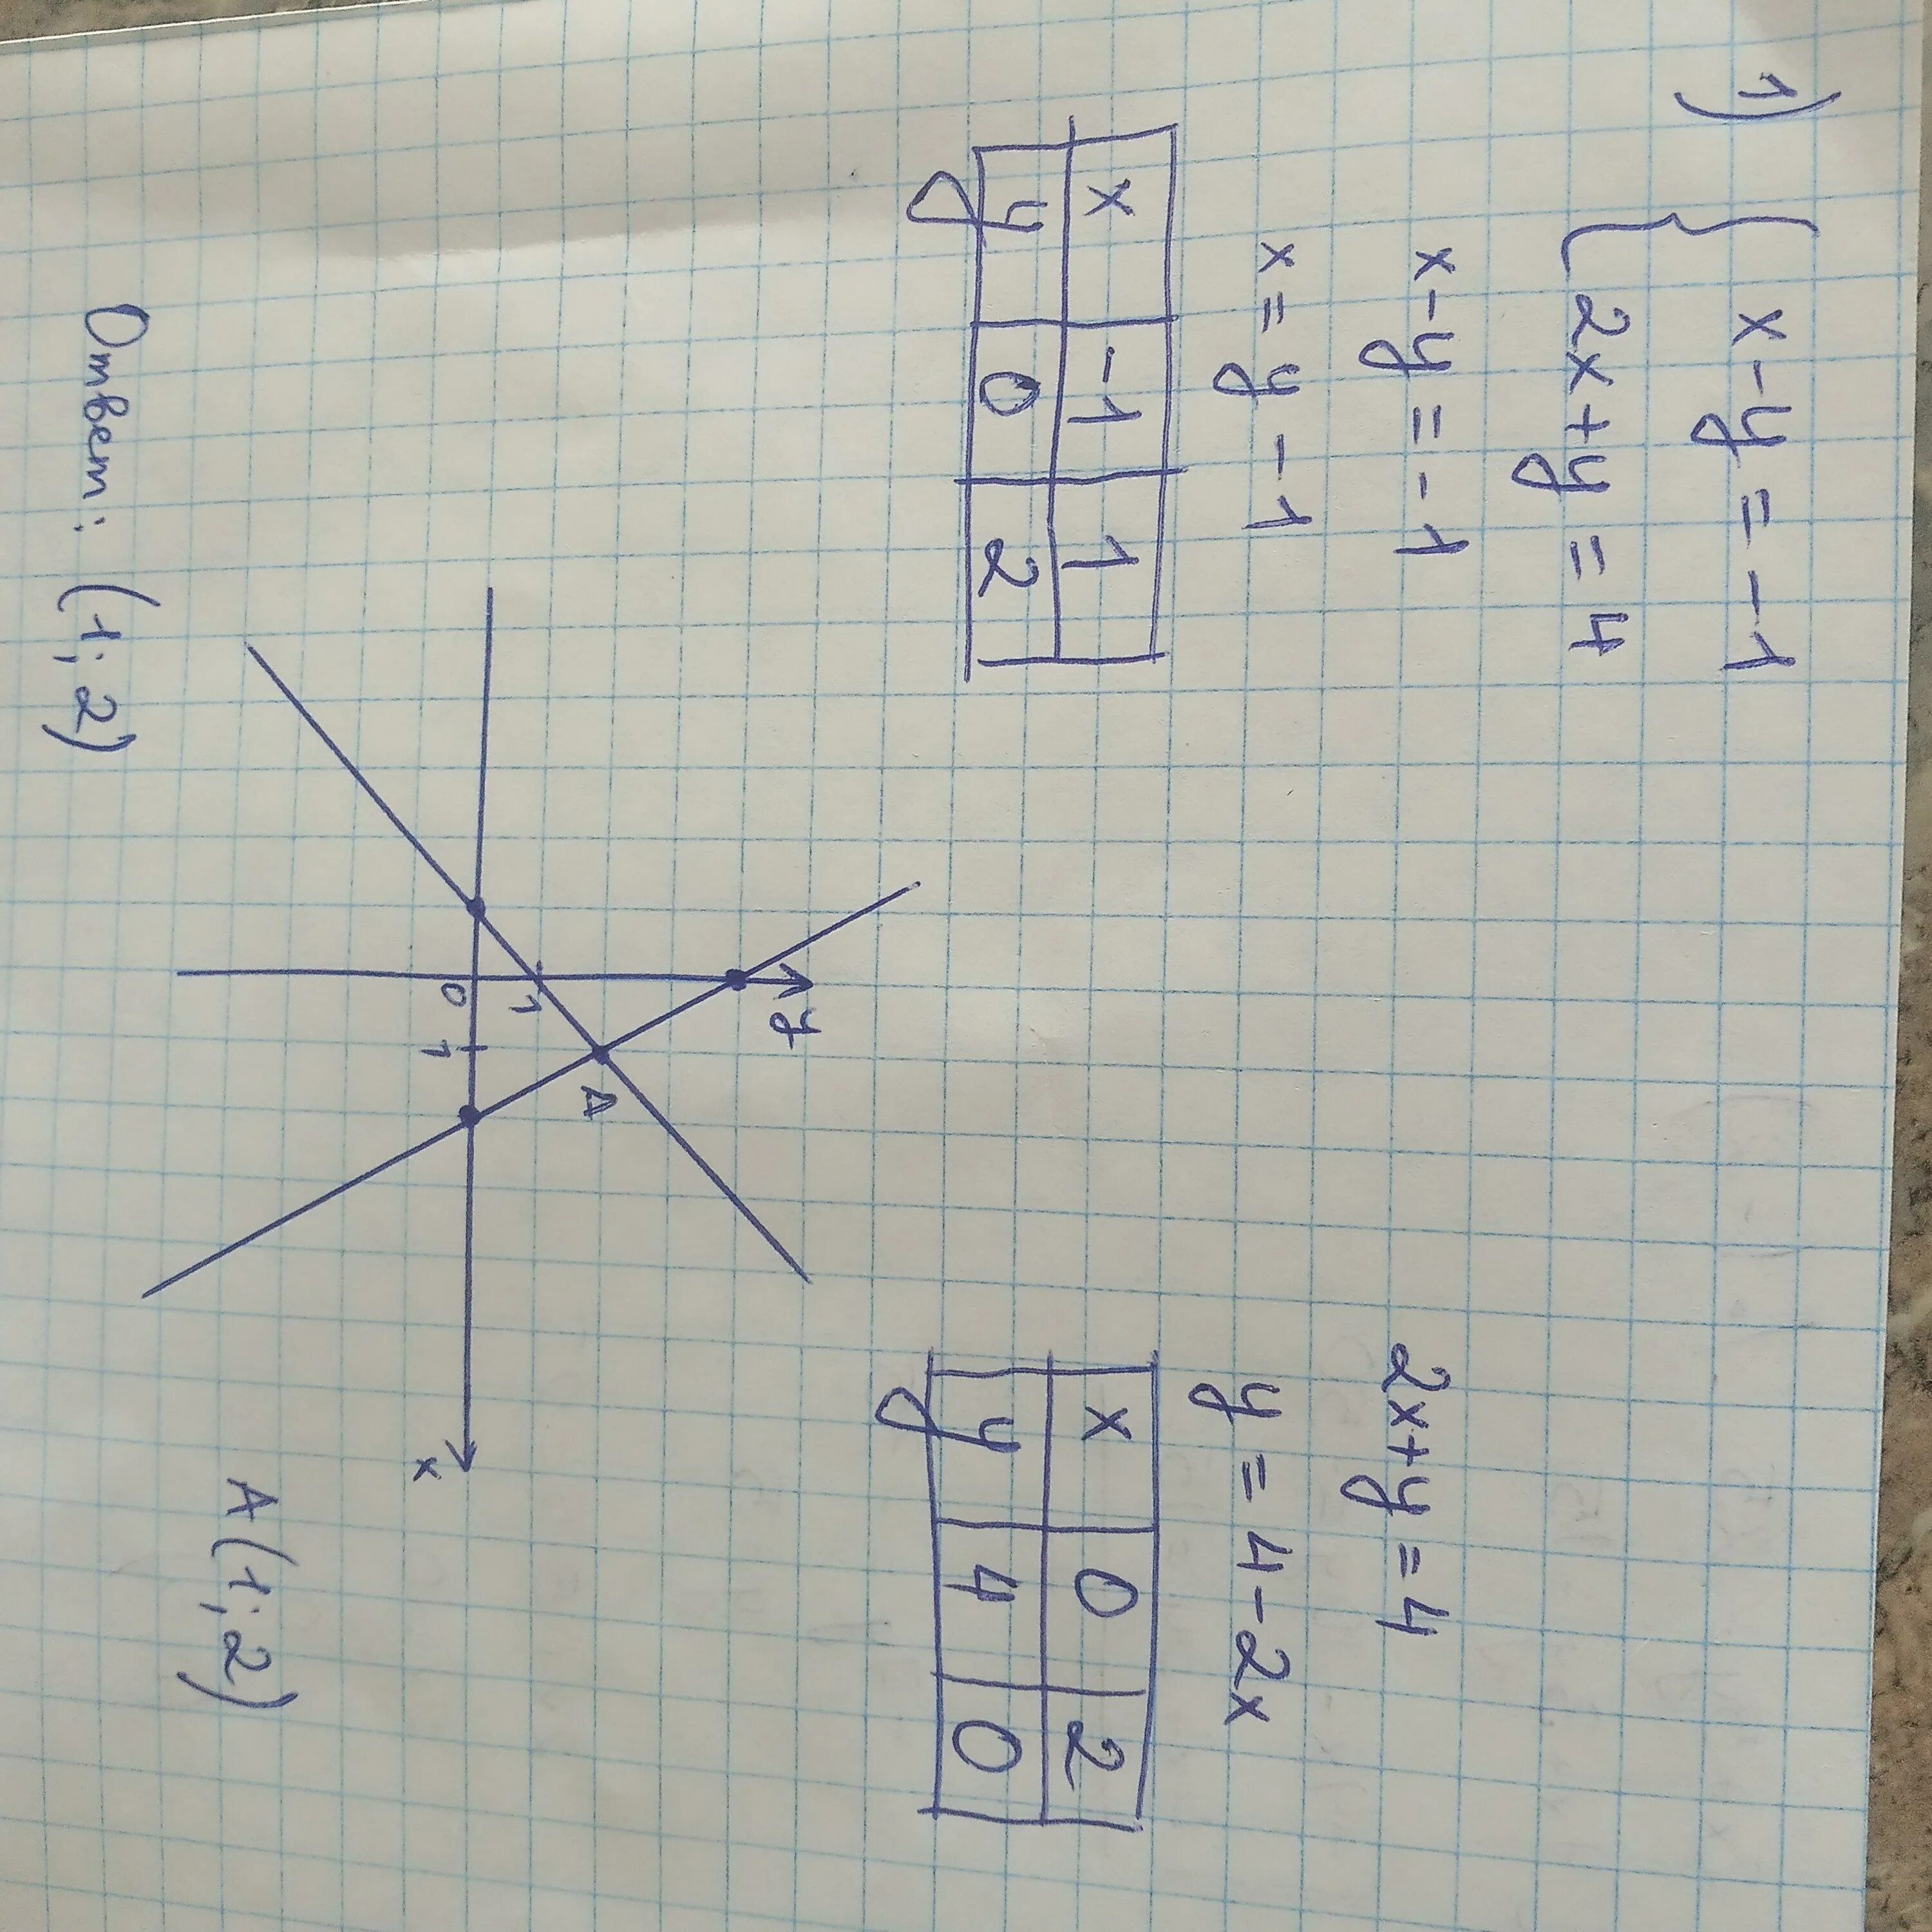 1) { x-y = -1
2x+y = 4
x-y = -1
2x+y = 4
x = y - 1
y = 4-2x
x -1 1
y 0 2
x 0 2
y 4 0
y
A
1
0 1
x
A(1; 2)
Ответ: (1; 2)